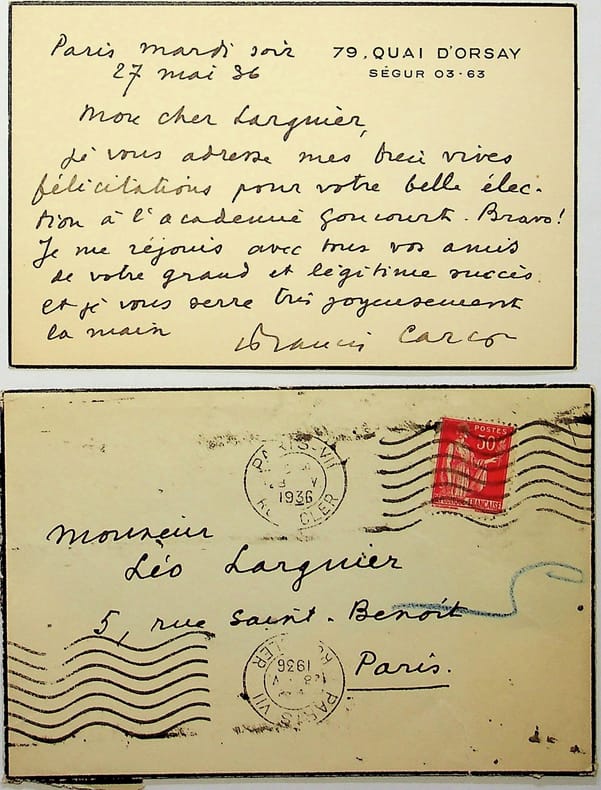 Paris mardi soir
27 mai 36
79, QUAI D'ORSAY
SÉGUR 03-63
Mon cher Larguier,
Je vous adresse mes bien vives
félicitations pour votre belle élec-
tion à l'academie Goncourt. Bravo!
Je me réjouis avec tous vos amis
de votre grand et légitime succès
et je vous serre très joyeusement
la main
Francis Carco
PARIS-VII
1936
CLER
POSTES
50c
FRANÇAISE
Monsieur
Léo Larguier
5, rue Saint-Benoît
Paris.
CLER
1936
28 V
PARIS VII